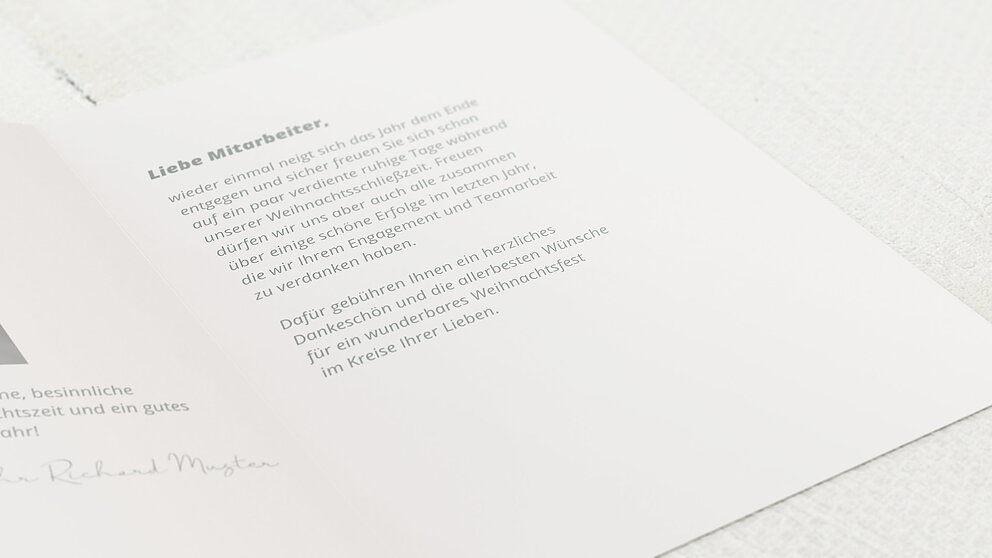 ne, besinnliche
chtszeit und ein gutes
ahr!
hr Richard Muster
Liebe Mitarbeiter,
wieder einmal neigt sich das Jahr dem Ende
entgegen und sicher freuen Sie sich schon
auf ein paar verdiente ruhige Tage während
unserer Weihnachtsschließzeit. Freuen
dürfen wir uns aber auch alle zusammen
über einige schöne Erfolge im letzten Jahr,
die wir Ihrem Engagement und Teamarbeit
zu verdanken haben.
Dafür gebühren Ihnen ein herzliches
Dankeschön und die allerbesten Wünsche
für ein wunderbares Weihnachtsfest
im Kreise Ihrer Lieben.